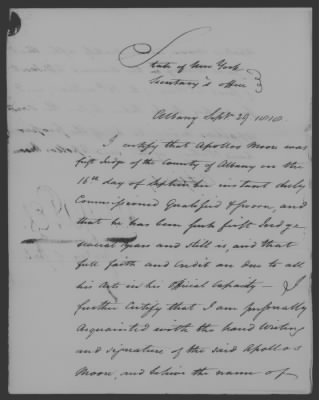 State of New York
Secretary's office
Albany Sept 29 1818.
I certify that Apollos Moore was
first Judge of the County of Albany on the
16th day of September instant duly
Commissioned Qualified & sworn, and
that he has been such first Judge
several years and still is, and that
full faith and Credit are due to all
his Acts in his Official Capacity — I
further Certify that I am personally
Acquainted with the hand Writing
and signature of the said Apollos
Moore, and believe the name of